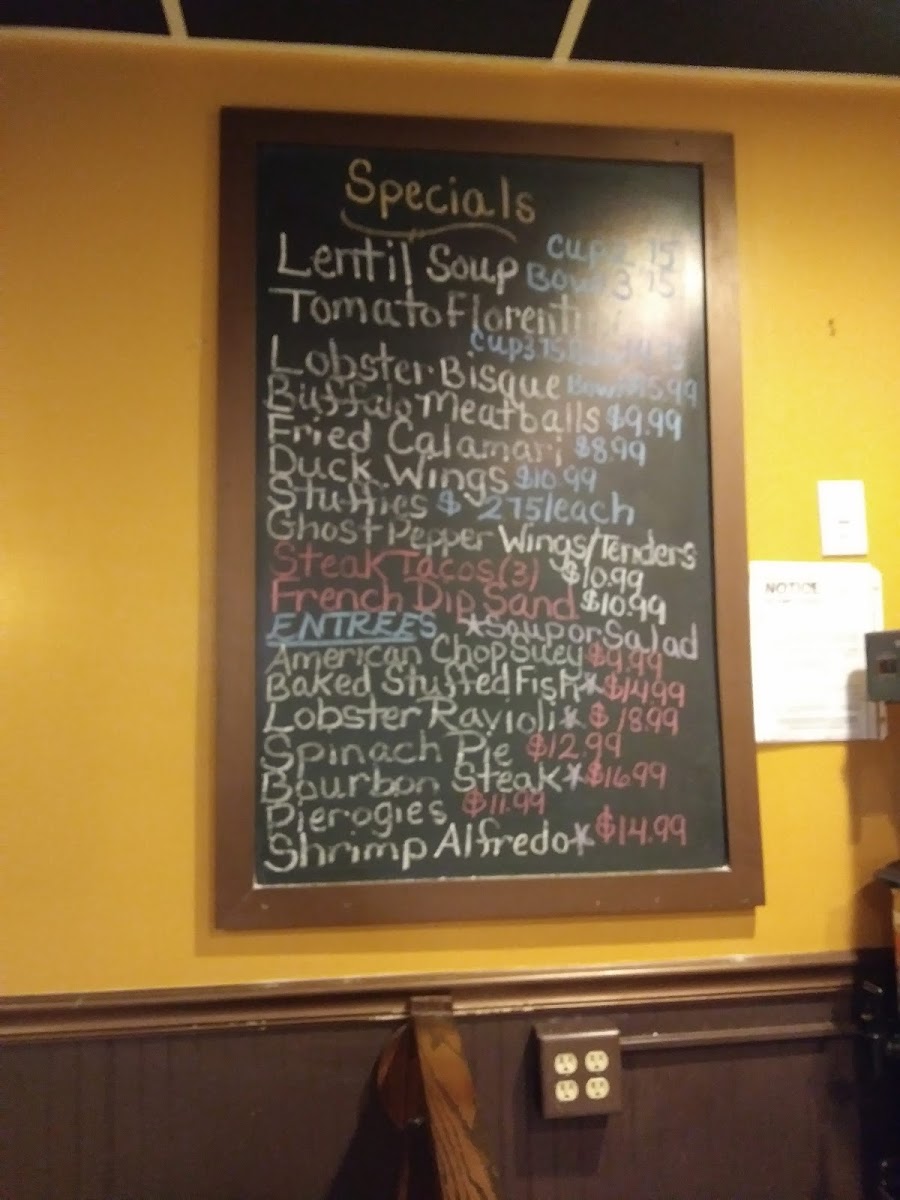 Specials
Lentil Soup Cup 2.75
Bowl 3.75
Tomato Florentine
Cup 3.75 Bowl 4.75
Lobster Bisque Bowl $5.99
Buffalo Meatballs $9.99
Fried Calamari $8.99
Duck Wings $10.99
Stuffies $ 2.75/each
Ghost Pepper Wings/Tenders
Steak Tacos(3) $10.99
French Dip Sand $10.99
ENTREES *Soup or Salad
American Chop Suey $9.99
Baked Stuffed Fish* $14.99
Lobster Ravioli* $18.99
Spinach Pie $12.99
Bourbon Steak* $16.99
Pierogies $11.99
Shrimp Alfredo* $14.99
NOTICE